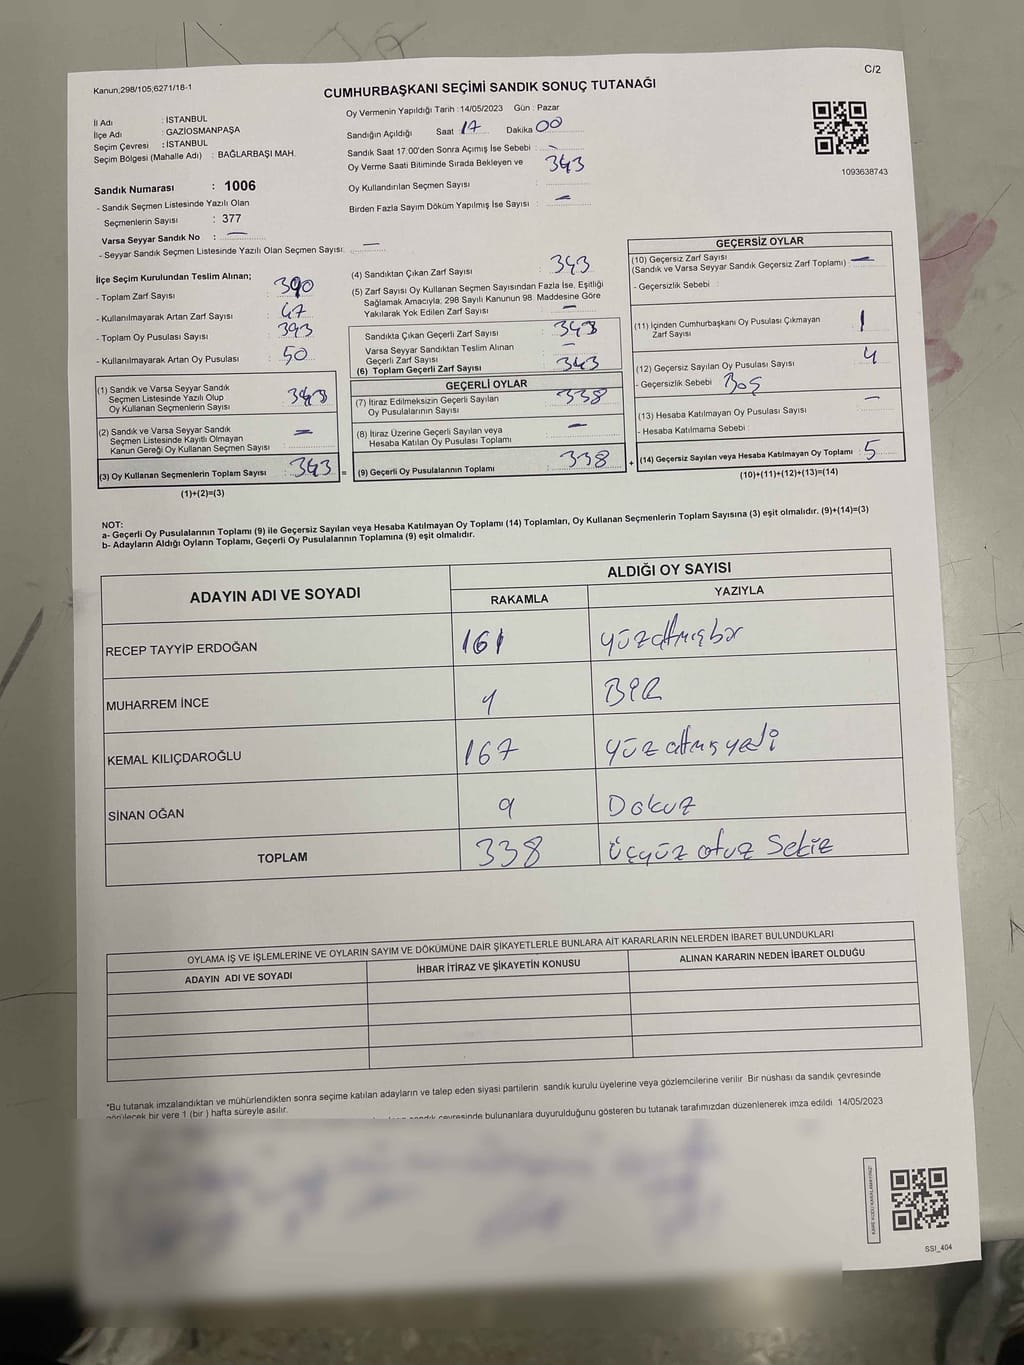 C/2
Kanun;298/105;6271/18-1
CUMHURBAŞKANI SEÇİMİ SANDIK SONUÇ TUTANAĞI
İl Adı : İSTANBUL
İlçe Adı : GAZİOSMANPAŞA
Seçim Çevresi : İSTANBUL
Seçim Bölgesi (Mahalle Adı) : BAĞLARBAŞI MAH.
Sandık Numarası : 1006
- Sandık Seçmen Listesinde Yazılı Olan
Seçmenlerin Sayısı : 377
Varsa Seyyar Sandık No : —
- Seyyar Sandık Seçmen Listesinde Yazılı Olan Seçmen Sayısı: —
Oy Vermenin Yapıldığı Tarih : 14/05/2023 Gün : Pazar
Sandığın Açıldığı Saat 17 Dakika 00
Sandık Saat 17.00'den Sonra Açımış İse Sebebi : —
Oy Verme Saati Bitiminde Sırada Bekleyen ve 343
Oy Kullandırılan Seçmen Sayısı :
Birden Fazla Sayım Döküm Yapılmış İse Sayısı : —
1093638743
İlçe Seçim Kurulundan Teslim Alınan;
- Toplam Zarf Sayısı : 390
- Kullanılmayarak Artan Zarf Sayısı : 47
- Toplam Oy Pusulası Sayısı : 393
- Kullanılmayarak Artan Oy Pusulası : 50
(1) Sandık ve Varsa Seyyar Sandık
Seçmen Listesinde Yazılı Olup
Oy Kullanan Seçmenlerin Sayısı : 343
(2) Sandık ve Varsa Seyyar Sandık
Seçmen Listesinde Kayıtlı Olmayan
Kanun Gereği Oy Kullanan Seçmen Sayısı : —
(3) Oy Kullanan Seçmenlerin Toplam Sayısı : 343 =
(1)+(2)=(3)
(4) Sandıktan Çıkan Zarf Sayısı : 343
(5) Zarf Sayısı Oy Kullanan Seçmen Sayısından Fazla İse, Eşitliği
Sağlamak Amacıyla; 298 Sayılı Kanunun 98. Maddesine Göre
Yakılarak Yok Edilen Zarf Sayısı : —
Sandıkta Çıkan Geçerli Zarf Sayısı : 343
Varsa Seyyar Sandıktan Teslim Alınan
Geçerli Zarf Sayısı : —
(6) Toplam Geçerli Zarf Sayısı : 343
GEÇERLİ OYLAR
(7) İtiraz Edilmeksizin Geçerli Sayılan
Oy Pusulalarının Sayısı : 338
(8) İtiraz Üzerine Geçerli Sayılan veya
Hesaba Katılan Oy Pusulası Toplamı : —
(9) Geçerli Oy Pusulalarının Toplamı : 338 +
GEÇERSİZ OYLAR
(10) Geçersiz Zarf Sayısı
(Sandık ve Varsa Seyyar Sandık Geçersiz Zarf Toplamı) —
- Geçersizlik Sebebi :
(11) İçinden Cumhurbaşkanı Oy Pusulası Çıkmayan
Zarf Sayısı : 1
(12) Geçersiz Sayılan Oy Pusulası Sayısı : 4
- Geçersizlik Sebebi : Boş
(13) Hesaba Katılmayan Oy Pusulası Sayısı : —
- Hesaba Katılmama Sebebi :
(14) Geçersiz Sayılan veya Hesaba Katılmayan Oy Toplamı : 5
(10)+(11)+(12)+(13)=(14)
NOT:
a- Geçerli Oy Pusulalarının Toplamı (9) ile Geçersiz Sayılan veya Hesaba Katılmayan Oy Toplamı (14) Toplamları, Oy Kullanan Seçmenlerin Toplam Sayısına (3) eşit olmalıdır. (9)+(14)=(3)
b- Adayların Aldığı Oyların Toplamı, Geçerli Oy Pusulalarının Toplamına (9) eşit olmalıdır.
ADAYIN ADI VE SOYADI
ALDIĞI OY SAYISI
RAKAMLA YAZIYLA
RECEP TAYYİP ERDOĞAN 161 yüzatmışbir
MUHARREM İNCE 1 BİR
KEMAL KILIÇDAROĞLU 167 yüz atmış yedi
SİNAN OĞAN 9 Dokuz
TOPLAM 338 üçyüz otuz Sekiz
OYLAMA İŞ VE İŞLEMLERİNE VE OYLARIN SAYIM VE DÖKÜMÜNE DAİR ŞİKAYETLERLE BUNLARA AİT KARARLARIN NELERDEN İBARET BULUNDUKLARI
ADAYIN ADI VE SOYADI İHBAR İTİRAZ VE ŞİKAYETİN KONUSU ALINAN KARARIN NEDEN İBARET OLDUĞU
*Bu tutanak imzalandıktan ve mühürlendikten sonra seçime katılan adayların ve talep eden siyasi partilerin sandık kurulu üyelerine veya gözlemcilerine verilir. Bir nüshası da sandık çevresinde
görülecek bir yere 1 (bir ) hafta süreyle asılır.
sandık çevresinde bulunanlara duyurulduğunu gösteren bu tutanak tarafımızdan düzenlenerek imza edildi. 14/05/2023
KARE KODU KARALAMAYINIZ!
SSI_404